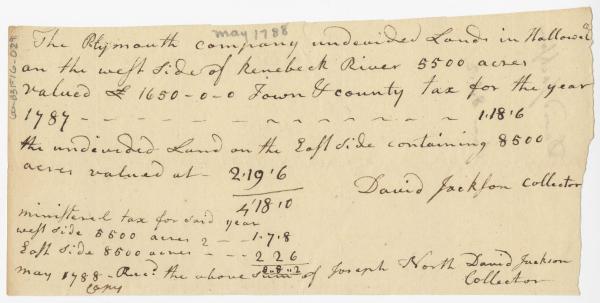 may 1788
The Plymouth company undivided Lands in Hallowell
on the west side of Kenebeck River 5500 acres
valued £ 1650-0-0 Town & county tax for the year
1787 - - - - - - - - - - - 1.18.6
the undevided Land on the East side containing 8500
acres valued at - 2.19.6
4.18.0
David Jackson Collector
ministerel tax for said year
west side 5500 acres - - 1.7.8
East side 8500 acres - - - 2 2 6
may 1788 - Recd. the above sum of Joseph North David Jackson
Copy
Collector